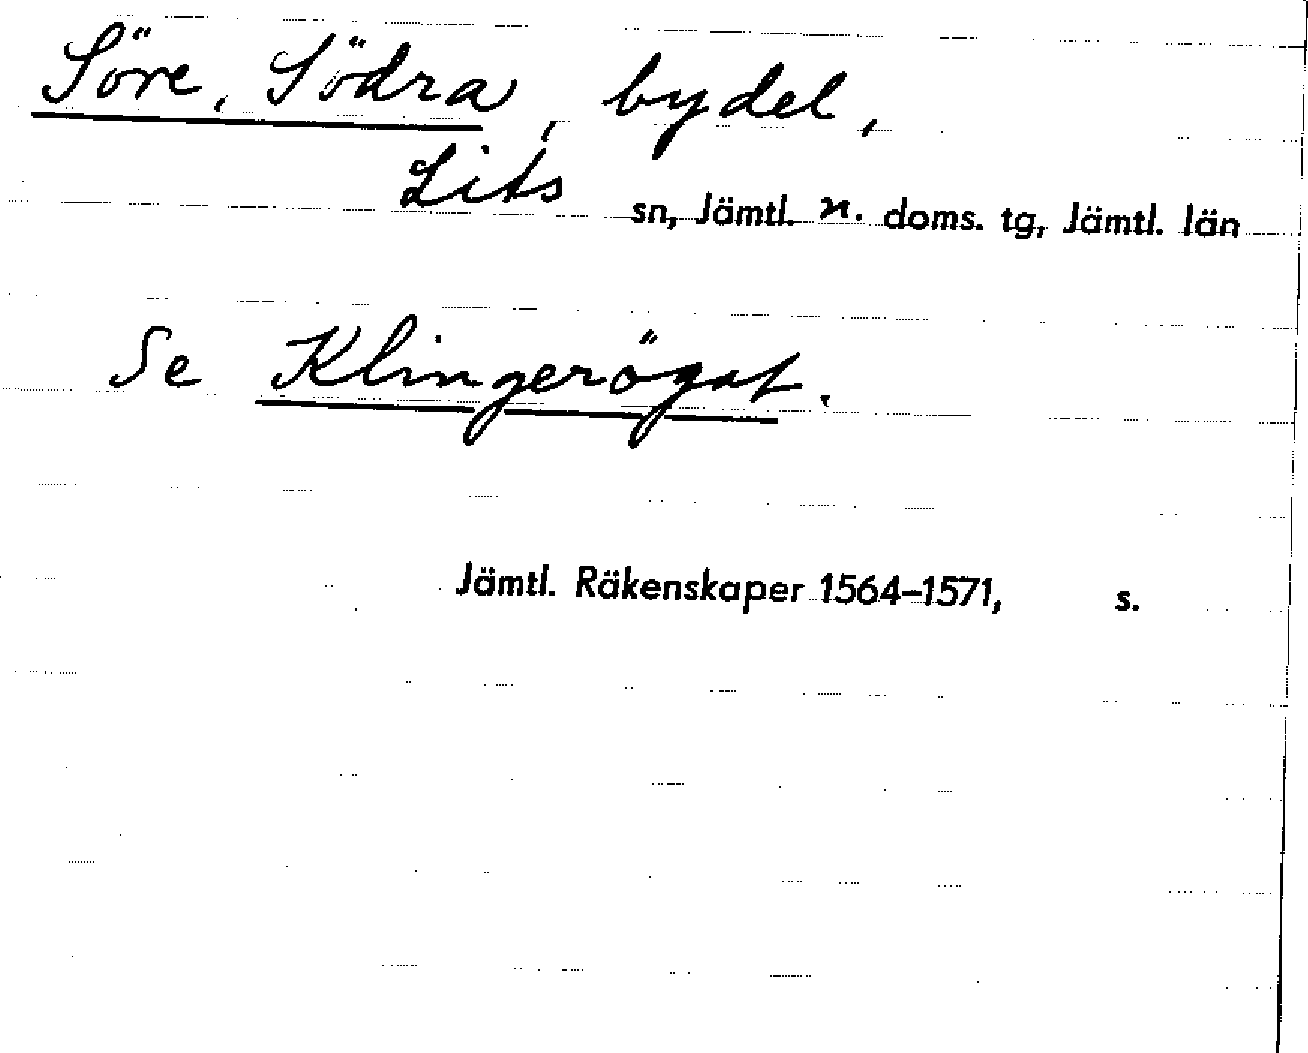 Söre, Södra, bydel,
Lits sn, Jämtl. n. doms. tg, Jämtl. län
Se Klingerögat.
Jämtl. Räkenskaper 1564–1571, s.